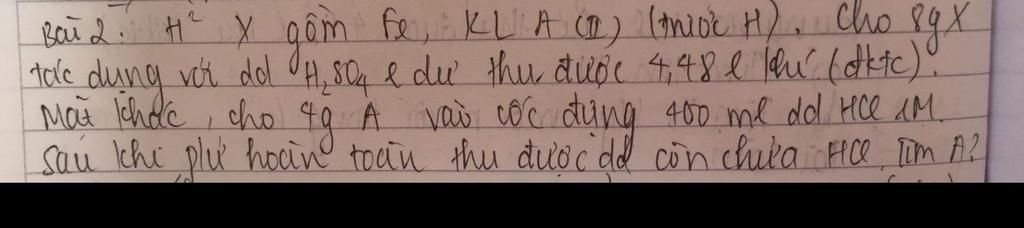 Bài 2. H² X gồm Fe, KL A (II) (trước H). Cho 8g X
tác dụng với dd H₂SO₄ l dư thu được 4,48 l khí (đktc).
Mặt khác, cho 4g A vào cốc đựng 400 ml dd HCl 1M.
Sau khi pứ hoàn toàn thu được dd còn chứa HCl. Tìm A?